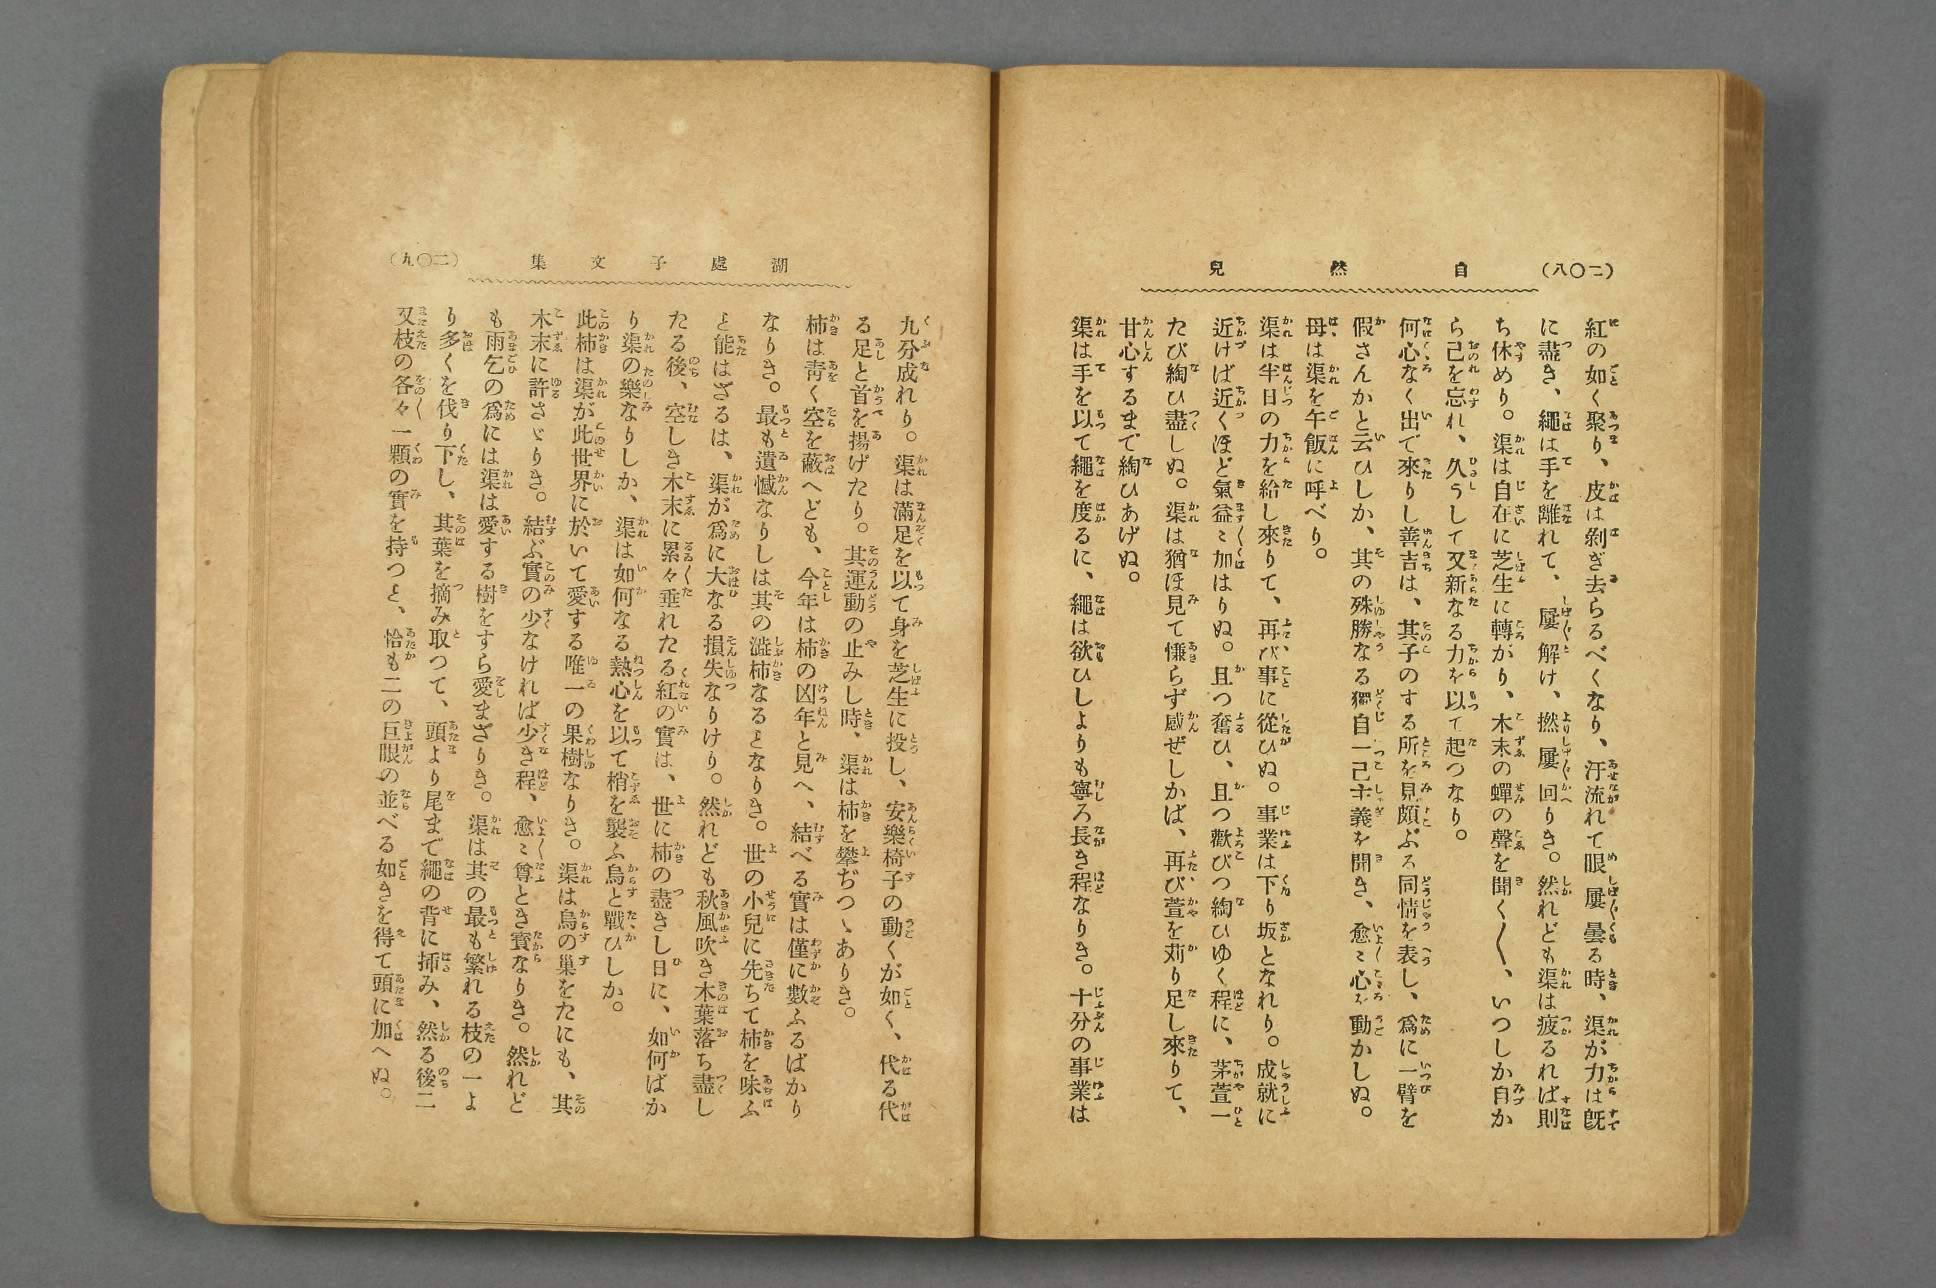 (二〇八) 自然兒
紅の如く聚り、皮は剝ぎ去らるべくなり、汗流れて眼屢曇る時、渠が力は既
に盡き、繩は手を離れて、屢解け、撚屢回りき。然れども渠は疲るれば則
ち休めり。渠は自在に芝生に轉がり、木末の蟬の聲を聞く〱、いつしか自か
ら己を忘れ、久うして又新なる力を以て起つなり。
何心なく出で來りし善吉は、其子のする所を見頗ぶる同情を表し、爲に一臂を
假さんかと云ひしか、其の殊勝なる獨自一己主義を聞き、愈〻心を動かしぬ。
母は渠を午飯に呼べり。
渠は半日の力を給し來りて、再び事に從ひぬ。事業は下り坂となれり。成就に
近けば近くほど氣益〻加はりぬ。且つ奮ひ、且つ歡びつ綯ひゆく程に、茅萱一
たび綯ひ盡しぬ。渠は猶ほ見て慊らず感ぜしかば、再び萱を苅り足し來りて、
甘心するまで綯ひあげぬ。
渠は手を以て繩を度るに、繩は欲ひしよりも寧ろ長き程なりき。十分の事業は
湖處子文集 (二〇九)
九分成れり。渠は滿足を以て身を芝生に投し、安樂椅子の動くが如く、代る代
る足と首を揚げたり。其運動の止みし時、渠は柿を攀ぢつゝありき。
柿は靑く空を蔽へども、今年は柿の凶年と見へ、結べる實は僅に數ふるばかり
なりき。最も遺憾なりしは其の澁柿なるとなりき。世の小兒に先ちて柿を味ふ
と能はざるは、渠が爲に大なる損失なりけり。然れども秋風吹き木葉落ち盡し
たる後、空しき木末に累々垂れたる紅の實は、世に柿の盡きし日に、如何ばか
り渠の樂なりしか、渠は如何なる熱心を以て梢を襲ふ烏と戰ひしか。
此柿は渠が此世界に於いて愛する唯一の果樹なりき。渠は烏の巢をたにも、其
木末に許さゞりき。結ぶ實の少なければ少き程、愈〻尊とき寳なりき。然れど
も雨乞の爲には渠は愛する樹をすら愛まざりき。渠は其の最も繁れる枝の一よ
り多くを伐り下し、其葉を摘み取つて、頭より尾まで繩の背に揷み、然る後二
又枝の各々一顆の實を持つと、恰も二の巨眼の並べる如きを得て頭に加へぬ。